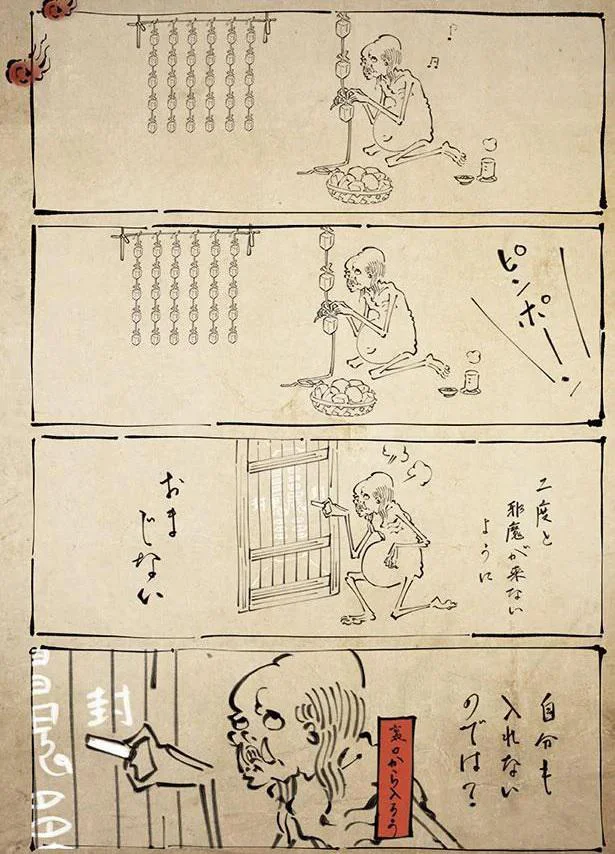 ピンポーン
二度と
邪魔が来ない
ように
おま
じない
自分も
入れない
のでは？
封
裏口から入ろう